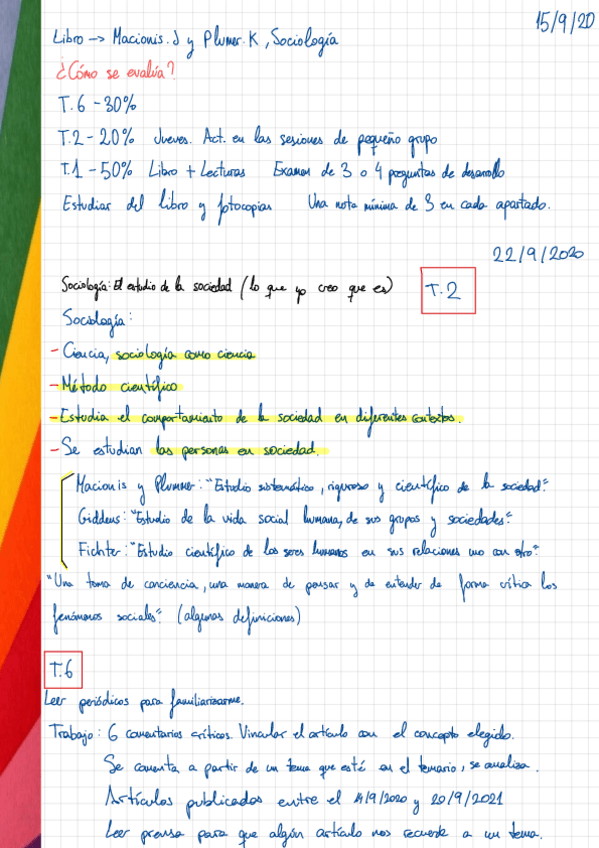 15/9/20
Libro -> Macionis.J y Plumer.K, Sociología
¿Cómo se evalúa?
T.6 - 30%
T.2 - 20% Jueves. Act. en las sesiones de pequeño grupo
T.1 - 50% Libro + Lecturas Examen de 3 o 4 preguntas de desarrollo
Estudiar del libro y fotocopias Una nota mínima de 3 en cada apartado.
22/9/2020
Sociología: El estudio de la sociedad (lo que yo creo que es) T.2
Sociología:
- Ciencia, sociología como ciencia
- Método científico
- Estudia el comportamiento de la sociedad en diferentes contextos.
- Se estudian las personas en sociedad.
Macionis y Plummer: "Estudio sistemático, riguroso y científico de la sociedad".
Giddens: "Estudio de la vida social humana, de sus grupos y sociedades".
Fichter: "Estudio científico de los seres humanos en sus relaciones uno con otro".
"Una toma de conciencia, una manera de pensar y de entender de forma crítica los
fenómenos sociales". (algunas definiciones)
T.6
Leer periódicos para familiarizarme.
Trabajo: 6 comentarios críticos. Vincular el artículo con el concepto elegido.
Se comenta a partir de un tema que esté en el temario, se analiza.
Artículos publicados entre el 14/9/2020 y 20/9/2021
Leer prensa para que algún artículo nos recuerde a un tema.